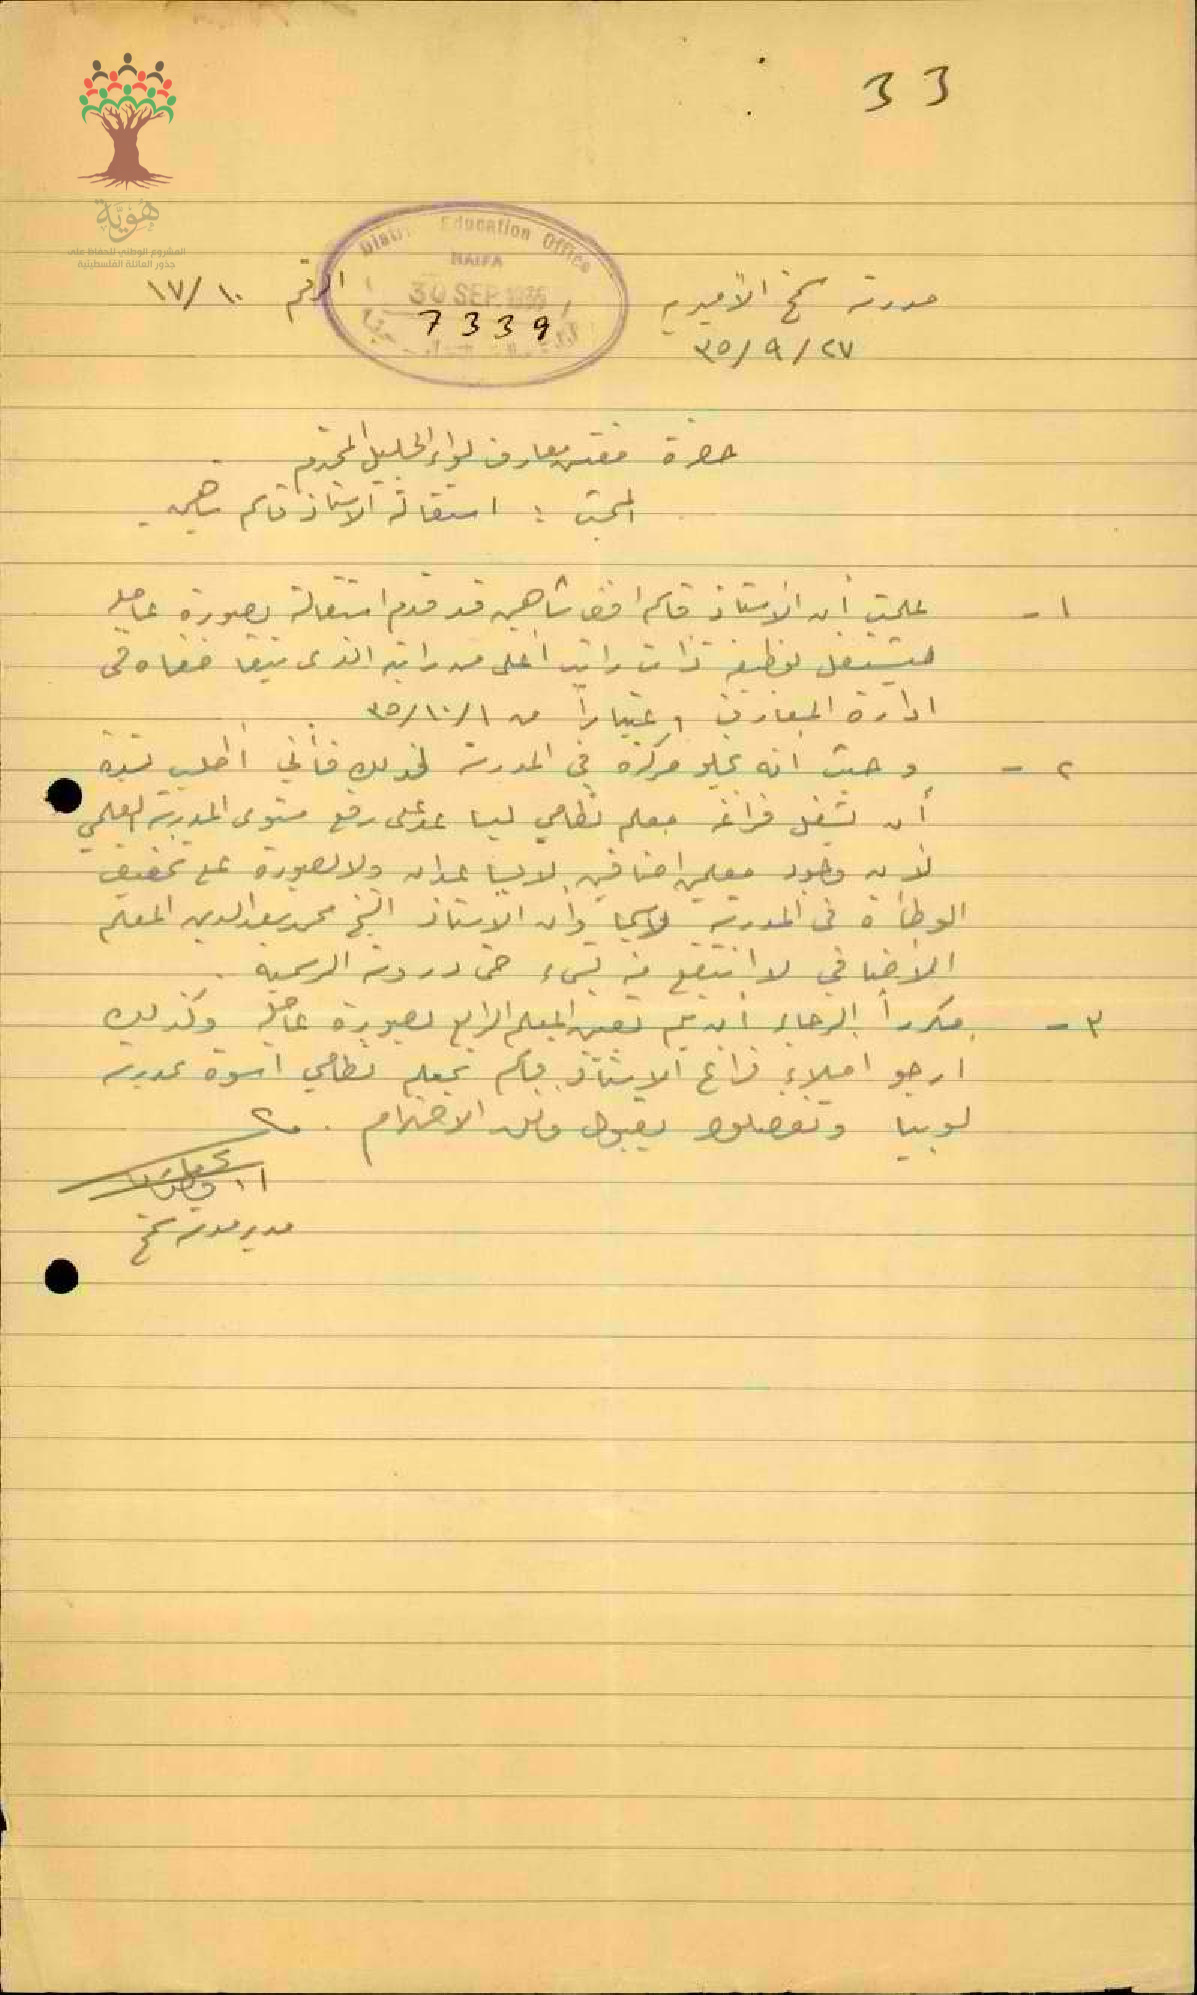 33
هُوِيَّة
المشروع الوطني للحفاظ على
جذور العائلة الفلسطينية
District Education Office
HAIFA
30 SEP 1935
7339
مدرسة سمخ الأميرية
الرقم ١٧/١٠
٣٥/٩/٢٧
حضرة مفتش معارف لواء الجليل المحترم
المبحث : استقالة الاستاذ قاسم شاهين
١ - علمت أن الاستاذ قاسم افندي شاهين قد قدم استقالته بصورة عاجلة
بوظيفة ذات راتب أعلى من راتبه الذي يتقاضاه في
ادارة المعارف اعتباراً من ٣٥/١٠/١
٢ - وحيث انه مركزه في المدرسة لذلك فأني أطلب بشدة
أن يشغل فراغه معلم نظامي على رفع مستوى المدرسة العلمي
لأن وجود معلمين اضافيين لا ولا بصورة على تخفيف
الوطأة في المدرسة لاسيما وأن الاستاذ الشيخ محمد سعد الدين المعلم
الاضافي لا انتفع منه بشيء حتى دروسه الرسمية .
٣ - مكرراً الرجاء أن يتم تعيين المعلم الرابع بصورة عاجلة وكذلك
ارجو املاء فراغ الاستاذ قاسم بمعلم نظامي اسوة بمدرسة
لوبيا وتفضلوا بقبول فائق الاحترام .
مدير مدرسة سمخ